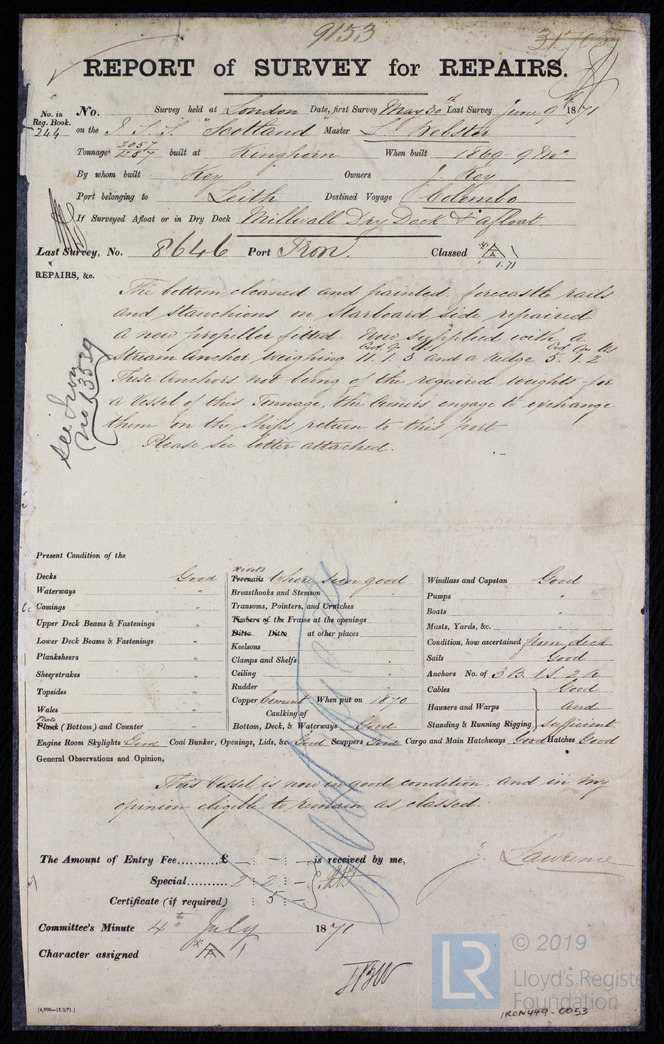 9153
REPORT of SURVEY for REPAIRS.
No. in Reg. Book. 244
No. Survey held at London Date, first Survey May 30th Last Survey June 9th 1871
on the S.S. "Scotland" Master L. Webster
Tonnage 2057 1257 built at Kinghorn When built 1869 9 Mo
By whom built Key Owners J. Key
Port belonging to Leith Destined Voyage Colombo
If Surveyed Afloat or in Dry Dock Millwall Dry Dock & afloat.
Last Survey, No. 8646 Port Iron. Classed A 1.71
REPAIRS, &c.
The bottom cleaned and painted. forecastle rails
and stanchions on Starboard side repaired
a new propeller fitted. Now supplied with a
Stream Anchor weighing 11.1.3 and a Kedge 5.1.2
These Anchors not being of the required weights for
a Vessel of this Tonnage, the Owners engage to exchange
them on the Ships return to this port
Please see letter attached.
See Iron
No 3539
Present Condition of the
Decks Good
Waterways "
Comings "
Upper Deck Beams & Fastenings "
Lower Deck Beams & Fastenings
Planksheers "
Sheerstrakes "
Topsides "
Wales "
Plate Plank (Bottom) and Counter "
Rivets Treenails Where seen good
Breasthooks and Stemson
Transoms, Pointers, and Crutches
Timbers of the Frame at the openings
Ditto. Ditto at other places
Keelsons
Clamps and Shelfs
Ceiling
Rudder
Copper Cement When put on 1870
Caulking of
Bottom, Deck, & Waterways Good
Windlass and Capstan Good
Pumps "
Boats "
Masts, Yards, &c. "
Condition, how ascertained from deck
Sails Good
Anchors No. of 3 B. 1 S. 2 K
Cables Good
Hawsers and Warps and
Standing & Running Rigging sufficient
Engine Room Skylights Good Coal Bunker, Openings, Lids, &c. Good Scuppers Good Cargo and Main Hatchways Good Hatches Good
General Observations and Opinion,
This Vessel is now in good condition, and in my
opinion eligible to remain as classed.
The Amount of Entry Fee..........£ – : – : – is received by me,
Special........... 2 : 2 : –
Certificate (if required) : 5 : –
J. Lawrence
Committee's Minute 4th July 1871
Character assigned A 1
[4,000—15/2/71.]
LR © 2019
Lloyd's Register
Foundation
IRON449-0053